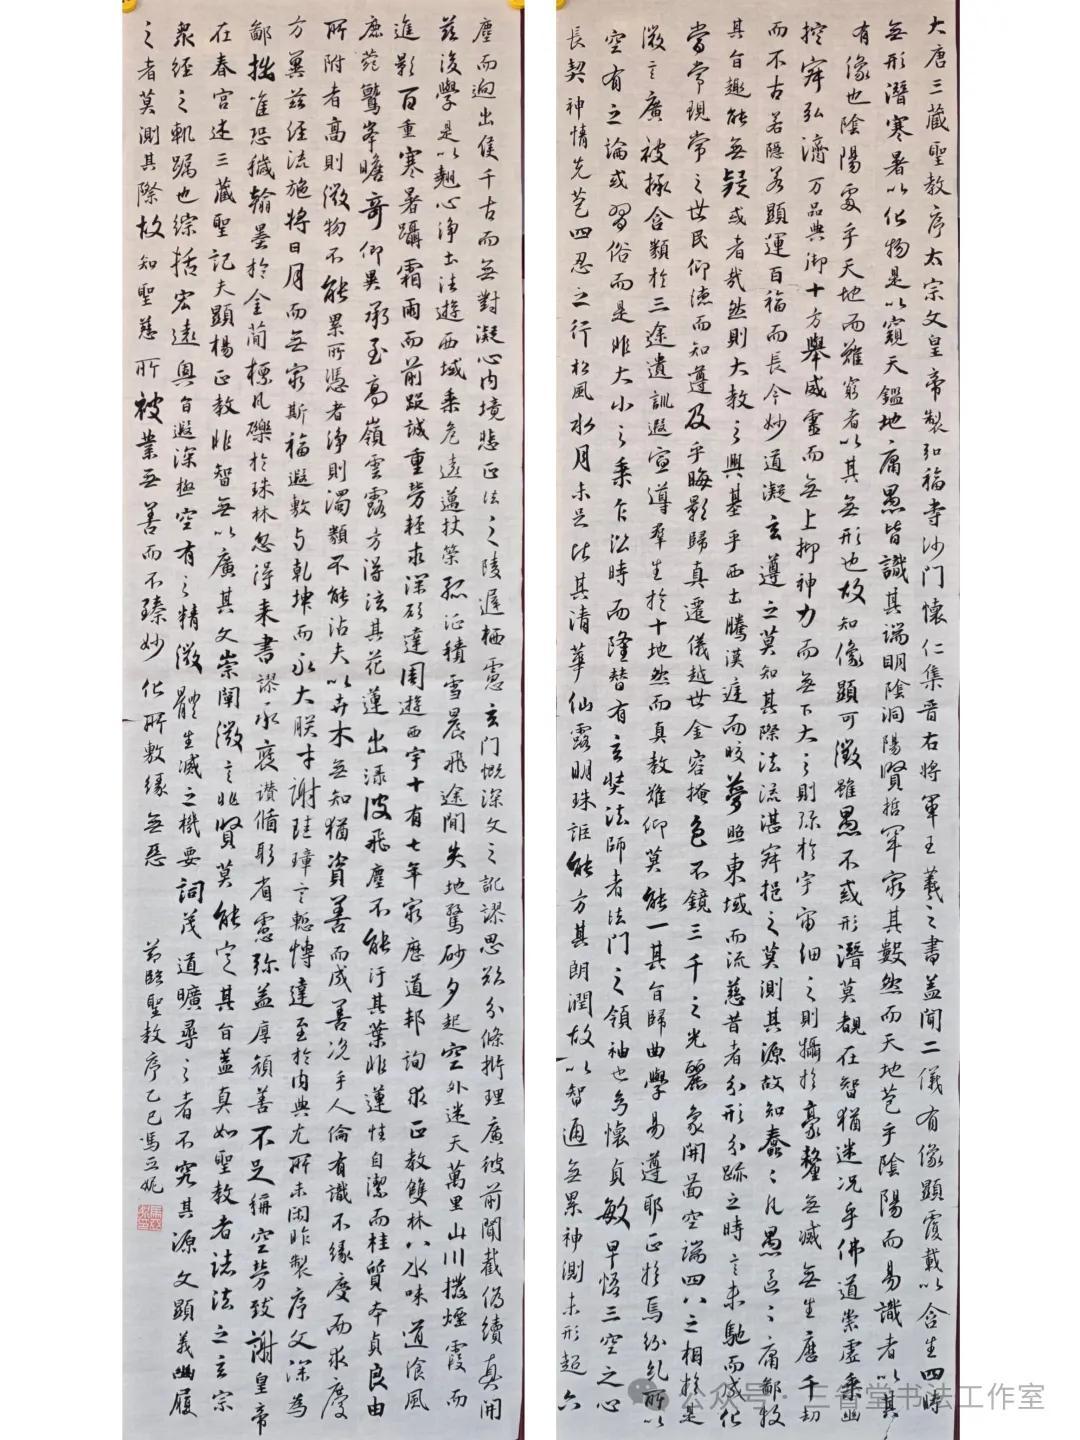 大唐三藏聖教序太宗文皇帝製弘福寺沙門懷仁集晉右將軍王羲之書蓋聞二儀有像顯覆載以含生四時
無形潛寒暑以化物是以窺天鑑地庸愚皆識其端明陰洞陽賢哲罕窮其數然而天地苞乎陰陽而易識者以其
有像也陰陽處乎天地而難窮者以其無形也故知像顯可徵雖愚不惑形潛莫覩在智猶迷況乎佛道崇虛乘幽
控寂弘濟万品典御十方舉威靈而無上抑神力而無下大之則弥於宇宙細之則攝於豪釐無滅無生歷千劫
而不古若隱若顯運百福而長今妙道凝玄遵之莫知其際法流湛寂挹之莫測其源故知蠢〻凡愚區〻庸鄙投
其旨趣能無疑或者哉然則大教之興基乎西土騰漢庭而皎夢照東域而流慈昔者分形分跡之時言未馳而成化
當常現常之世民仰德而知遵及乎晦影歸真遷儀越世金容掩色不鏡三千之光麗象開圖空端四八之相於是
微言廣被拯含類於三途遺訓遐宣導羣生於十地然而真教難仰莫能一其旨歸曲學易遵耶正於焉紛糺所以
空有之論或習俗而是非大小之乘乍沿時而隆替有玄奘法師者法門之領袖也幼懷貞敏早悟三空之心
長契神情先苞四忍之行松風水月未足比其清華仙露明珠詎能方其朗潤故以智通無累神測未形超六
塵而迥出隻千古而無對凝心內境悲正法之陵遲栖慮玄門慨深文之訛謬思欲分條析理廣彼前聞截偽續真開
茲後學是以翹心淨土法遊西域乘危遠邁杖策孤征積雪晨飛途間失地驚砂夕起空外迷天萬里山川撥煙霞而
進影百重寒暑躡霜雨而前蹤誠重勞輕求深願達周遊西宇十有七年窮歷道邦詢求正教雙林八水味道飡風
鹿菀鷲峯瞻奇仰異承至高嶺雲露方得泫其花蓮出淥波飛塵不能汙其葉非蓮性自潔而桂質本貞良由
所附者高則微物不能累所憑者淨則濁類不能沾夫以卉木無知猶資善而成善況乎人倫有識不緣慶而求慶
方冀茲經流施將日月而無窮斯福遐敷与乾坤而永大朕才謝珪璋言慙博達至於內典尤所未閑昨製序文深為
鄙拙唯恐穢翰墨於金簡標凡礫於珠林忽得來書謬承褒讚循躬省慮弥益厚顏善不足稱空勞致謝皇帝
在春宮述三藏聖記夫顯揚正教非智無以廣其文崇闡微言非賢莫能定其旨蓋真如聖教者諸法之玄宗
衆經之軌躅也綜括宏遠奧旨遐深極空有之精微體生滅之機要詞茂道曠尋之者不究其源文顯義幽履
之者莫測其際故知聖慈所被業無善而不臻妙化所敷緣無惡
節臨聖教序乙巳馬立妮
公众号·三香堂书法工作室